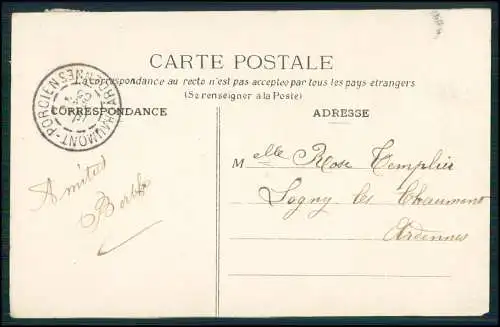 CARTE POSTALE
La correspondance au recto n'est pas acceptée par tous les pays étrangers
(Se renseigner à la Poste)
CHAUMONT-PORCIEN
ARDENNES
CORRESPONDANCE
ADRESSE
Amitiés
Berthe
Melle Rose Templier
Logny les Chaumont
Ardennes